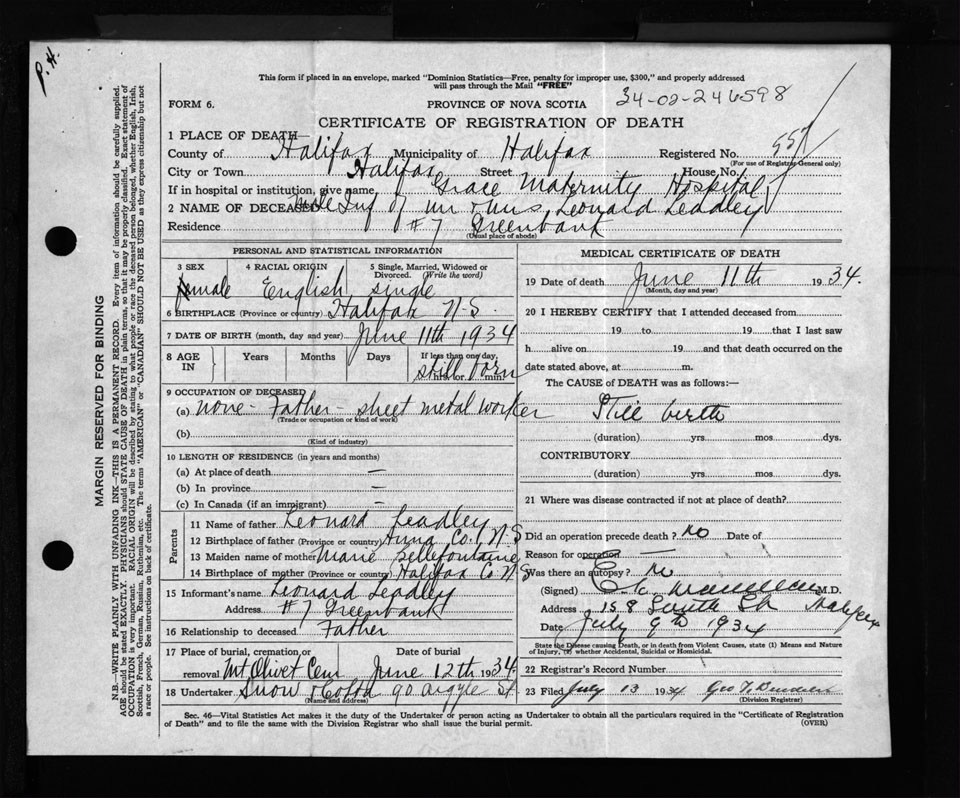 P.H.
This form if placed in an envelope, marked "Dominion Statistics—Free, penalty for improper use, $300," and properly addressed
will pass through the Mail "FREE"
34-02-246598
FORM 6. PROVINCE OF NOVA SCOTIA
CERTIFICATE OF REGISTRATION OF DEATH
1 PLACE OF DEATH—
County of Halifax Municipality of Halifax Registered No. 557
(For use of Registrar General only)
City or Town Halifax Street House No.
If in hospital or institution, give name Grace Maternity Hospital
2 NAME OF DECEASED male Inf of Mr & Mrs Leonard Leadley
Residence #7 Greenbank
(Usual place of abode)
PERSONAL AND STATISTICAL INFORMATION
3 SEX 4 RACIAL ORIGIN 5 Single, Married, Widowed or Divorced. (Write the word)
male English single
6 BIRTHPLACE (Province or country) Halifax N.S.
7 DATE OF BIRTH (month, day and year) June 11th 1934
8 AGE IN Years Months Days If less than one day, hrs. or min.
still born
9 OCCUPATION OF DECEASED
(a) none - Father - sheet metal worker
(Trade or occupation or kind of work)
(b)
(Kind of industry)
10 LENGTH OF RESIDENCE (in years and months)
(a) At place of death —
(b) In province —
(c) In Canada (if an immigrant) —
Parents
11 Name of father Leonard Leadley
12 Birthplace of father (Province or country) Anna Co. N S
13 Maiden name of mother Marie Bellefontaine
14 Birthplace of mother (Province or country) Halifax Co N S
15 Informant's name Leonard Leadley
Address #7 Greenbank
16 Relationship to deceased Father
17 Place of burial, cremation, or removal Date of burial
Mt Olivet Cem June 12th 1934
18 Undertaker Snow & Co Ltd 90 Argyle St.
(Name and address)
MEDICAL CERTIFICATE OF DEATH
19 Date of death June 11th 1934.
(Month, day and year)
20 I HEREBY CERTIFY that I attended deceased from
19 to 19 that I last saw
h alive on 19 and that death occurred on the
date stated above, at m.
The CAUSE of DEATH was as follows:—
Still birth
(duration) yrs. mos. dys.
CONTRIBUTORY
(duration) yrs. mos. dys.
21 Where was disease contracted if not at place of death?
Did an operation precede death? No Date of
Reason for operation —
Was there an autopsy? No
(Signed) M.D.
Address 158 South St Halifax
Date July 9th 1934
State the Disease causing Death, or in death from Violent Causes, state (1) Means and Nature of Injury, (2) whether Accidental, Suicidal or Homicidal.
22 Registrar's Record Number
23 Filed July 13 1934 Geo
(Division Registrar)
Sec. 46—Vital Statistics Act makes it the duty of the Undertaker or person acting as Undertaker to obtain all the particulars required in the "Certificate of Registration
of Death" and to file the same with the Division Registrar who shall issue the burial permit. (OVER)
MARGIN RESERVED FOR BINDING
N.B.—WRITE PLAINLY WITH UNFADING INK—THIS IS A PERMANENT RECORD. Every item of information should be carefully supplied.
AGE should be stated EXACTLY. PHYSICIANS should STATE CAUSE OF DEATH in plain terms, so that it may be properly classified. Exact statement of
OCCUPATION is very important. RACIAL ORIGIN will be described by stating to what people or race the deceased person belonged, whether English, Irish,
Scottish, French, German, Russian, Ruthenian, etc. The terms "AMERICAN" or "CANADIAN" SHOULD NOT BE USED as they express citizenship but not
a race or people. See instructions on back of certificate.